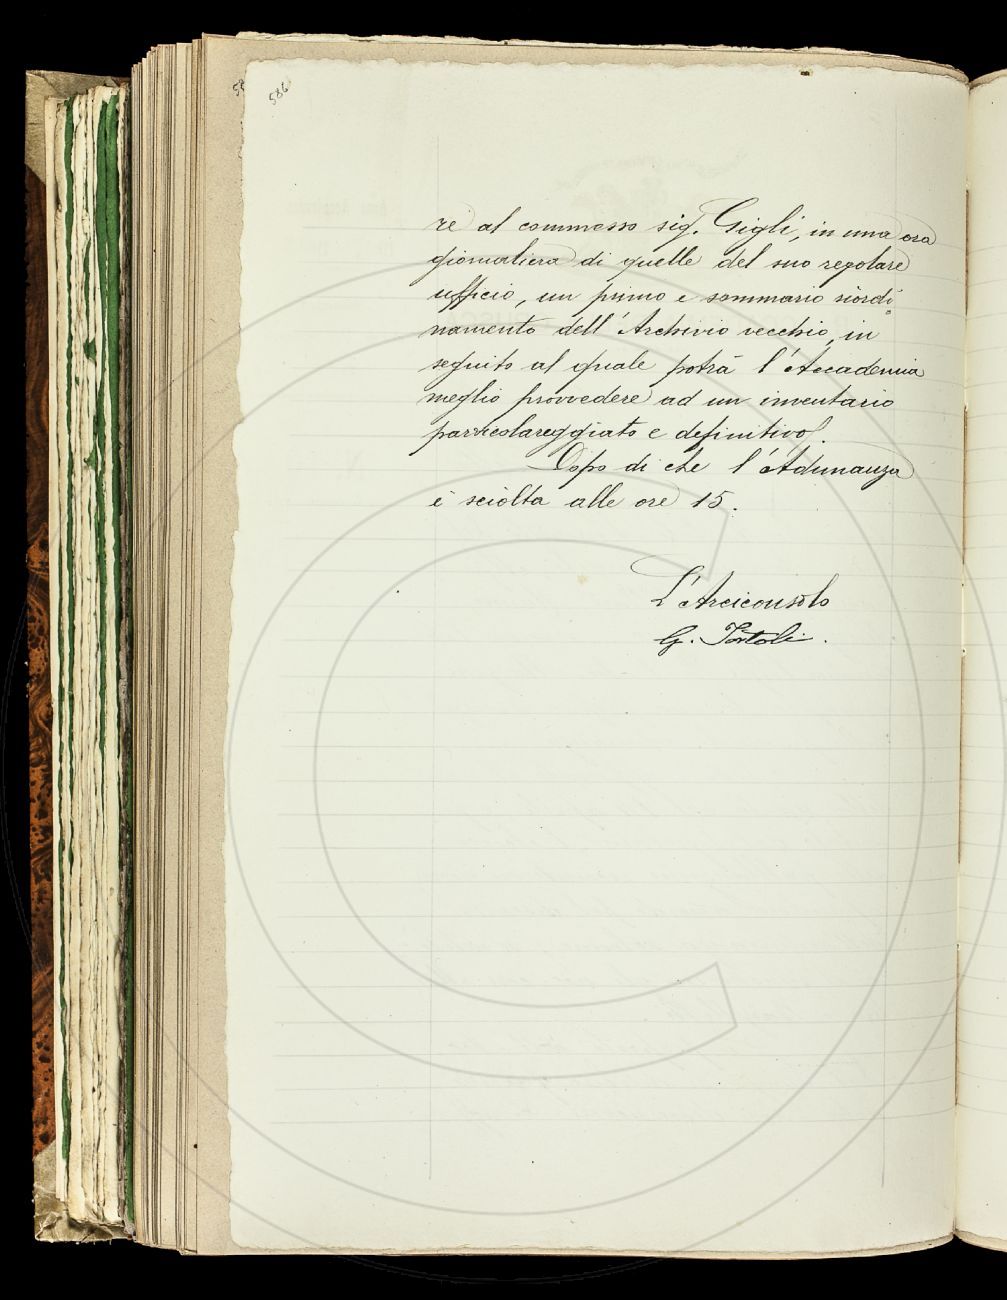 586
re al commesso sig. Gigli, in una ora
giornaliera di quelle del suo regolare
ufficio, un primo e sommario riordi-
namento dell'Archivio vecchio, in
seguito al quale potrà l'Accademia
meglio provvedere ad un inventario
particolareggiato e definitivo.
Dopo di che l'Adunanza
è sciolta alle ore 15.
L'Arciconsolo
G. Tortoli.